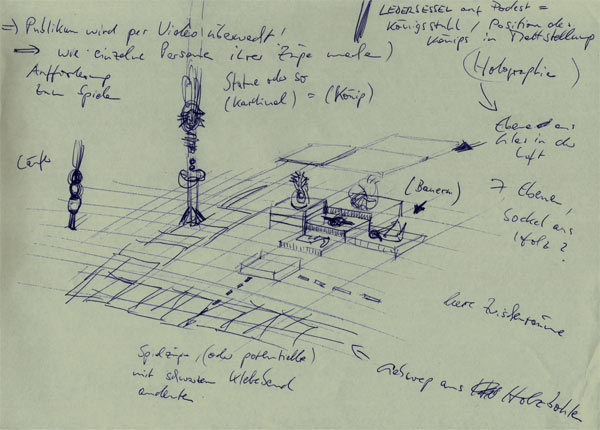 ⇒ Publikum wird per Video überwacht!
⇒ wie einzelne Personen ihrer Züge machen)
Aufforderung
zum Spielen
Statue oder so
(Kardinal) = (König)
LEDERSESSEL auf Podest =
Königsstuhl / Position des
Königs in Mattstellung
(Holographie)
Ebene aus
Glas in der
Luft
Läufer
(Bauern)
7 Ebenen
Sockel aus
Holz?
leere Zwischenräume
Spielzüge, (oder potentielle)
mit schwarzem Klebeband
andeuten.
Gehweg aus Holzbohlen